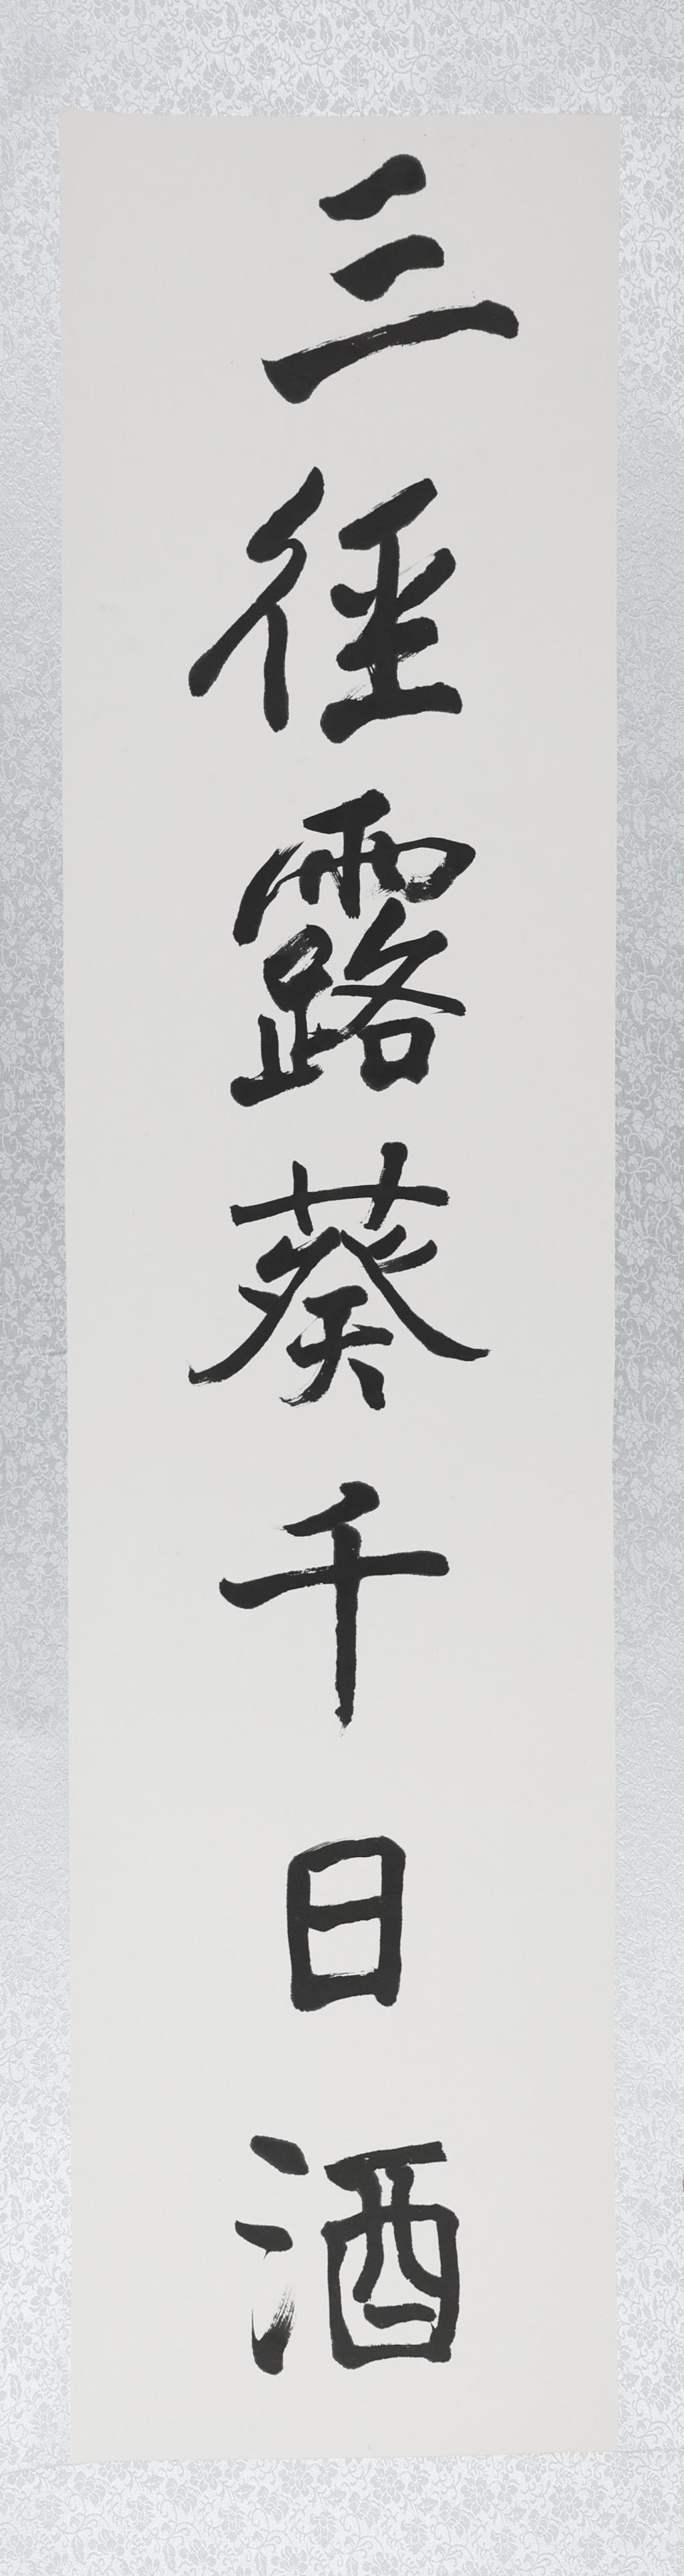 三徑露葵千日酒